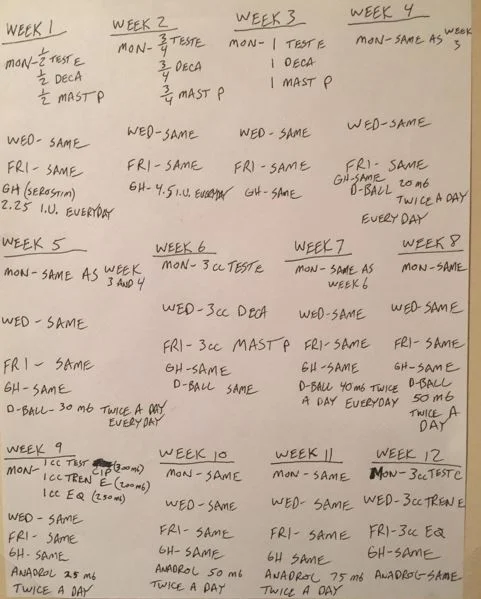 WEEK 1
MON- 1/2 TEST E
1/2 DECA
1/2 MAST P
WED- SAME
FRI- SAME
GH (SEROSTIM)
2.25 I.U. EVERYDAY
WEEK 2
MON- 3/4 TEST E
3/4 DECA
3/4 MAST P
WED- SAME
FRI- SAME
GH- 4.5 I.U. EVERYDAY
WEEK 3
MON- 1 TEST E
1 DECA
1 MAST P
WED- SAME
FRI- SAME
GH- SAME
WEEK 4
MON- SAME AS WEEK
3
WED- SAME
FRI- SAME
GH-SAME
D-BALL 20 MG
TWICE A DAY
EVERYDAY
WEEK 5
MON- SAME AS WEEK
3 AND 4
WED- SAME
FRI- SAME
GH- SAME
D-BALL- 30 MG TWICE A DAY
EVERYDAY
WEEK 6
MON- 3cc TEST E
WED- 3cc DECA
FRI- 3cc MAST P
GH- SAME
D-BALL SAME
WEEK 7
MON- SAME AS
WEEK 6
WED- SAME
FRI- SAME
GH- SAME
D-BALL 40 MG TWICE
A DAY EVERYDAY
WEEK 8
MON- SAME
WED- SAME
FRI- SAME
GH- SAME
D-BALL
50 MG
TWICE A
DAY
WEEK 9
MON- 1cc TEST CIP (300 MG)
1cc TREN E (200 MG)
1cc EQ (250 MG)
WED- SAME
FRI- SAME
GH- SAME
ANADROL 25 MG
TWICE A DAY
WEEK 10
MON- SAME
WED- SAME
FRI- SAME
GH- SAME
ANADROL 50 MG
TWICE A DAY
WEEK 11
MON- SAME
WED- SAME
FRI- SAME
GH SAME
ANADROL 75 MG
TWICE A DAY
WEEK 12
MON- 3cc TEST C
WED- 3cc TREN E
FRI- 3cc EQ
GH- SAME
ANADROL- SAME